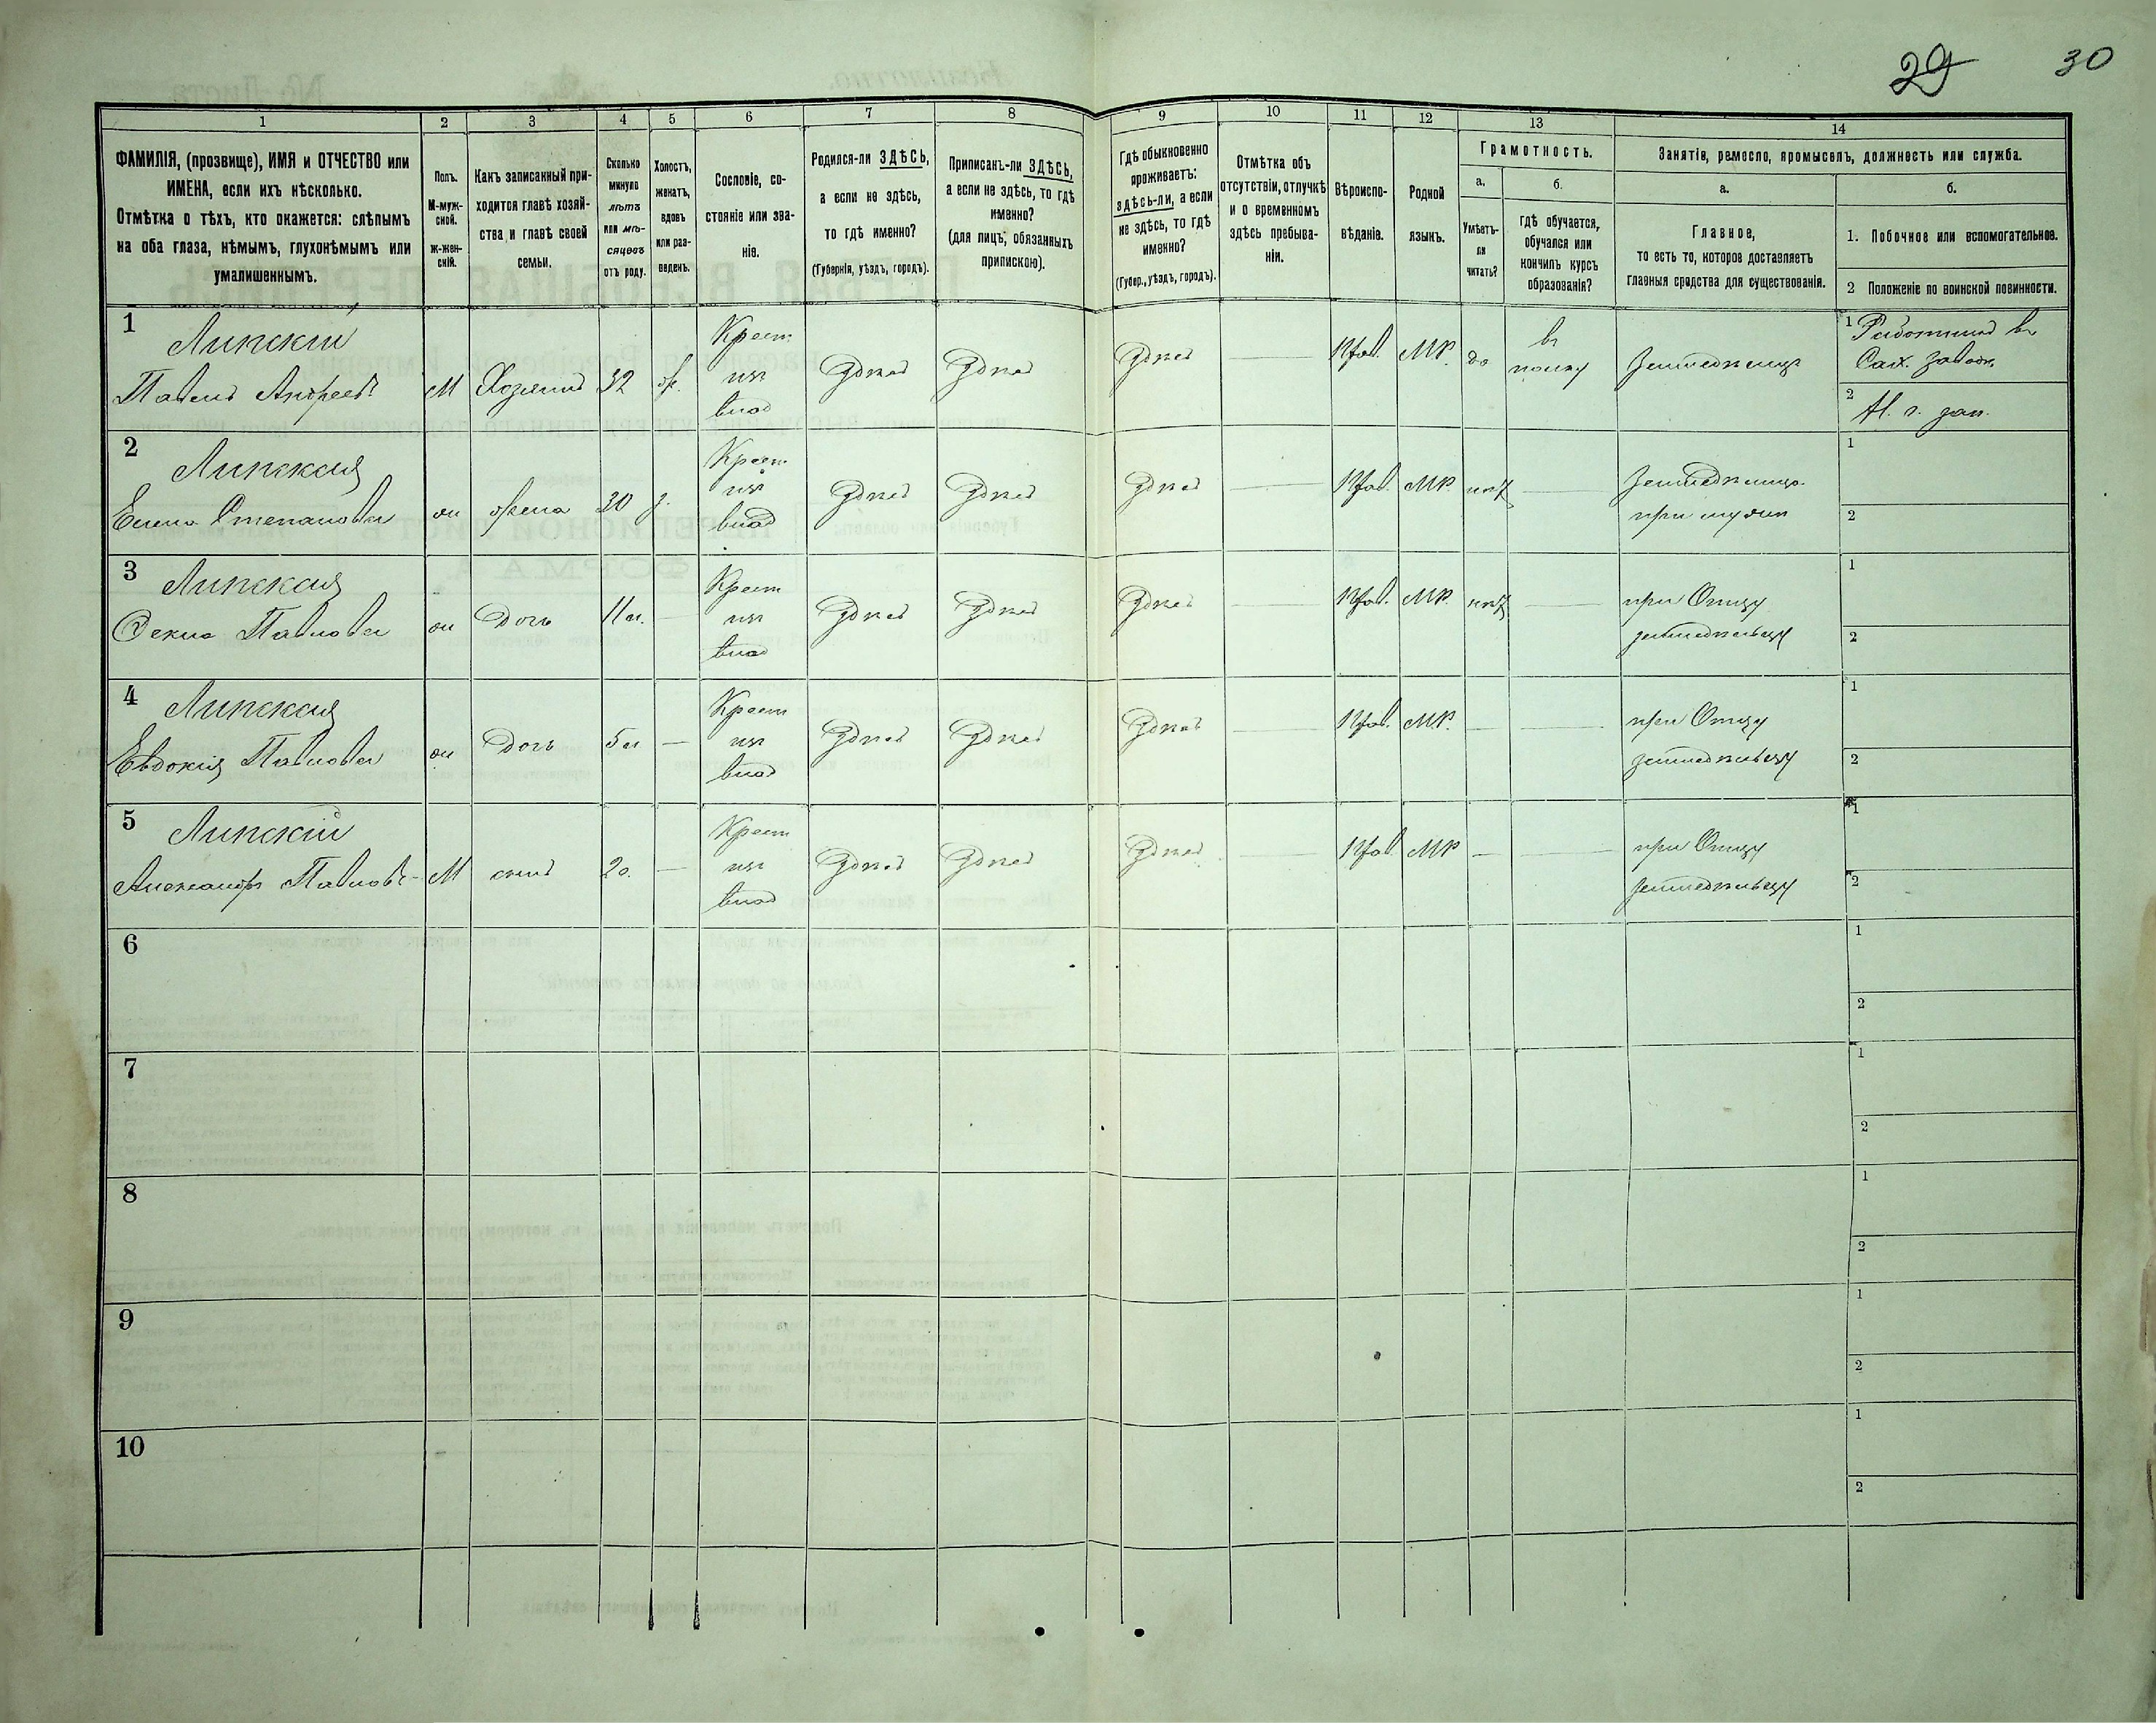 29 30
1 2 3 4 5 6 7 8 9 10 11 12 13 14
ФАМИЛІЯ, (прозвище), ИМЯ и ОТЧЕСТВО или
ИМЕНА, если ихъ нѣсколько.
Отмѣтка о тѣхъ, кто окажется: слѣпымъ
на оба глаза, нѣмымъ, глухонѣмымъ или
умалишеннымъ.
Полъ.
М-муж-
ской.
Ж-жен-
скій.
Какъ записанный при-
ходится главѣ хозяй-
ства и главѣ своей
семьи.
Сколько
минуло
лѣтъ
или мѣ-
сяцевъ
отъ роду.
Холостъ,
женатъ,
вдовъ
или раз-
веденъ.
Сословіе, со-
стояніе или зва-
ніе.
Родился-ли ЗДѢСЬ,
а если не здѣсь,
то гдѣ именно?
(Губернія, уѣздъ, городъ).
Приписанъ-ли ЗДѢСЬ,
а если не здѣсь, то гдѣ
именно?
(для лицъ, обязанныхъ
припискою).
Гдѣ обыкновенно
проживаетъ:
здѣсь-ли, а если
не здѣсь, то гдѣ
именно?
(Губер., уѣздъ, городъ).
Отмѣтка объ
отсутствіи, отлучкѣ
и о временномъ
здѣсь пребыва-
ніи.
Вѣроиспо-
вѣданіе.
Родной
языкъ.
Грамотность.
а.
Умѣетъ-
ли
читать?
б.
гдѣ обучается,
обучался или
кончилъ курсъ
образованія?
Занятіе, ремесло, промыселъ, должность или служба.
а.
Главное,
то есть то, которое доставляетъ
главныя средства для существованія.
б.
1. Побочное или вспомогательное.
2 Положеніе по воинской повинности.
1 Липскій
Павелъ Андреевъ М Хозяинъ 32 ж.
Крест
изъ
влад
Здѣсь Здѣсь Здѣсь — Прав. МР. да
въ
полку
Земледѣлецъ
1 Работникъ въ
Сах. завод.
2
2 Липская
Елена Степанова ж жена 30 з.
Крест
изъ
влад
Здѣсь Здѣсь Здѣсь — Прав. МР. нѣтъ —
Земледѣлица
при мужѣ
1
2
3 Липская
Фекла Павлова ж Дочь 11 л. —
Крест
изъ
влад
Здѣсь Здѣсь Здѣсь — Прав. МР. нѣтъ —
при Отцу
земледѣльцу
1
2
4 Липская
Евдокія Павлова ж Дочь 5 л —
Крест
изъ
влад
Здѣсь Здѣсь Здѣсь — Прав. МР. — —
при Отцу
земледѣльцу
1
2
5 Липскій
Александръ Павловъ М сынъ 2 —
Крест
изъ
влад
Здѣсь Здѣсь Здѣсь — Прав МР — —
при Отцу
земледѣльцу
1
2
6
1
2
7
1
2
8
1
2
9
1
2
10
1
2